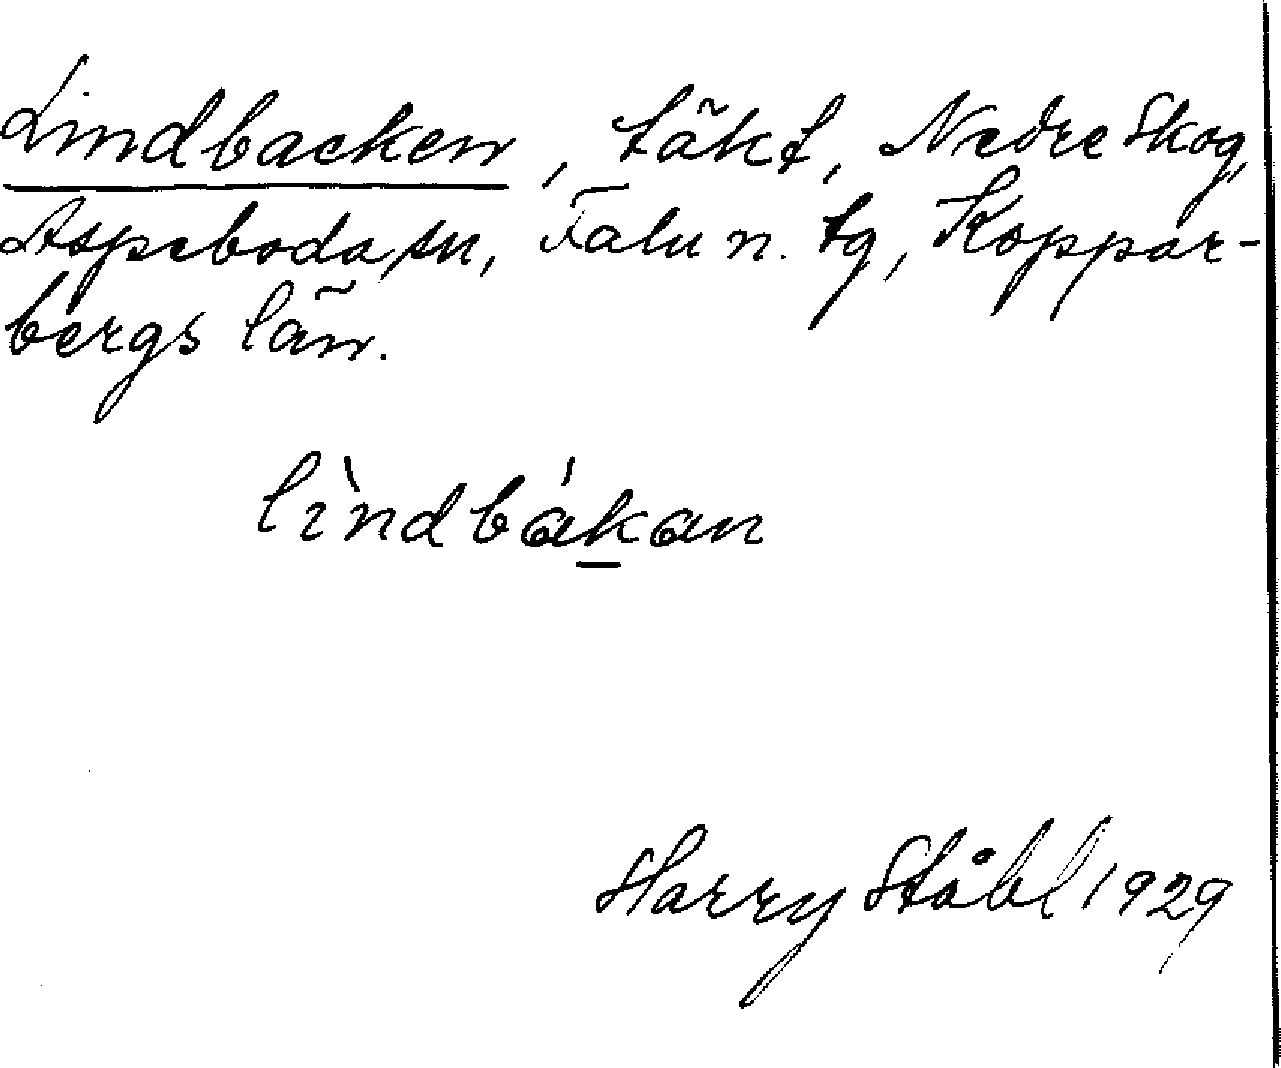 Lindbacken, täkt, Nedre Skog,
Aspeboda sn, Falu n. tg, Koppar-
bergs län.
lìndbákan
Harry Ståhl 1929